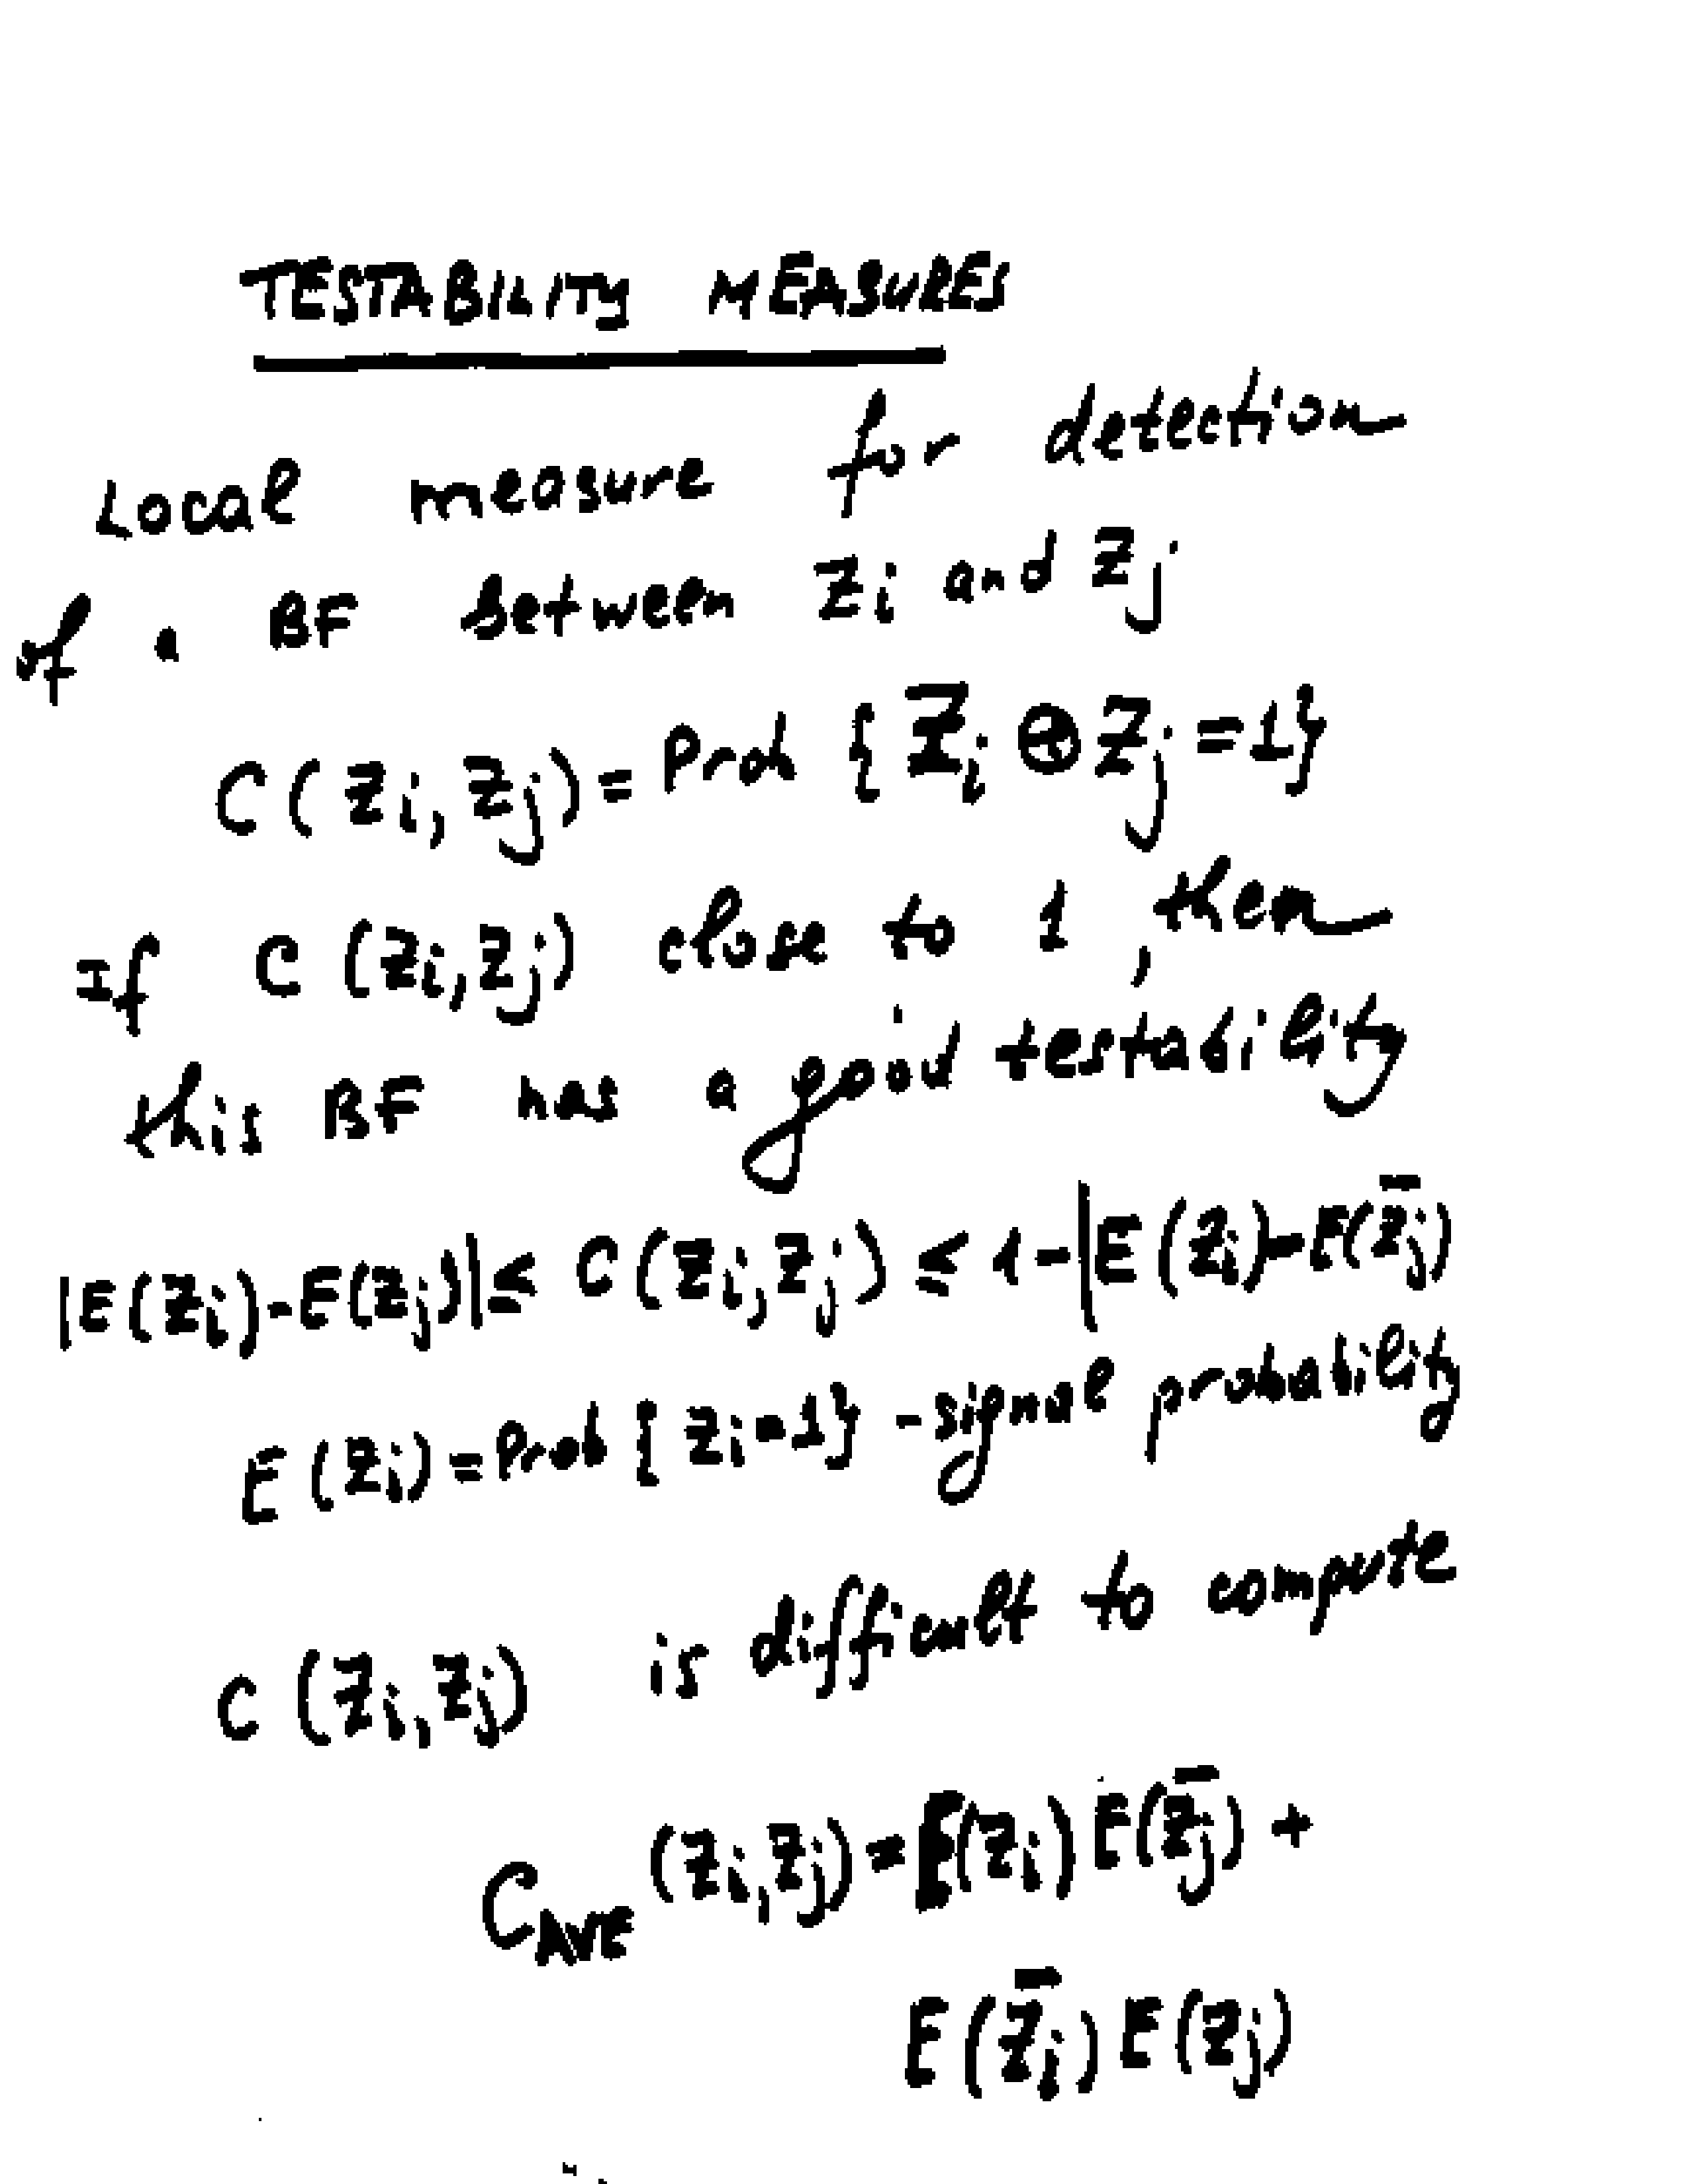 TESTABILITY MEASURES
Local measure for detection
of a BF between Zi and Zj
C(Zi,Zj)=Prob {Zi⊕Zj=1}
If C(Zi,Zj) close to 1, then
this BF has a good testability
|E(Zi)-E(Zj)|≤ C(Zi,Zj) ≤ 1-|E(Zi)-E(Z̄j)
E(Zi)=Prob{Zi=1} -signal probability
C(Zi,Zj) is difficult to compute
CAVE(Zi,Zj)=E(Zi)E(Z̄j)+
E(Z̄i)E(Zj)